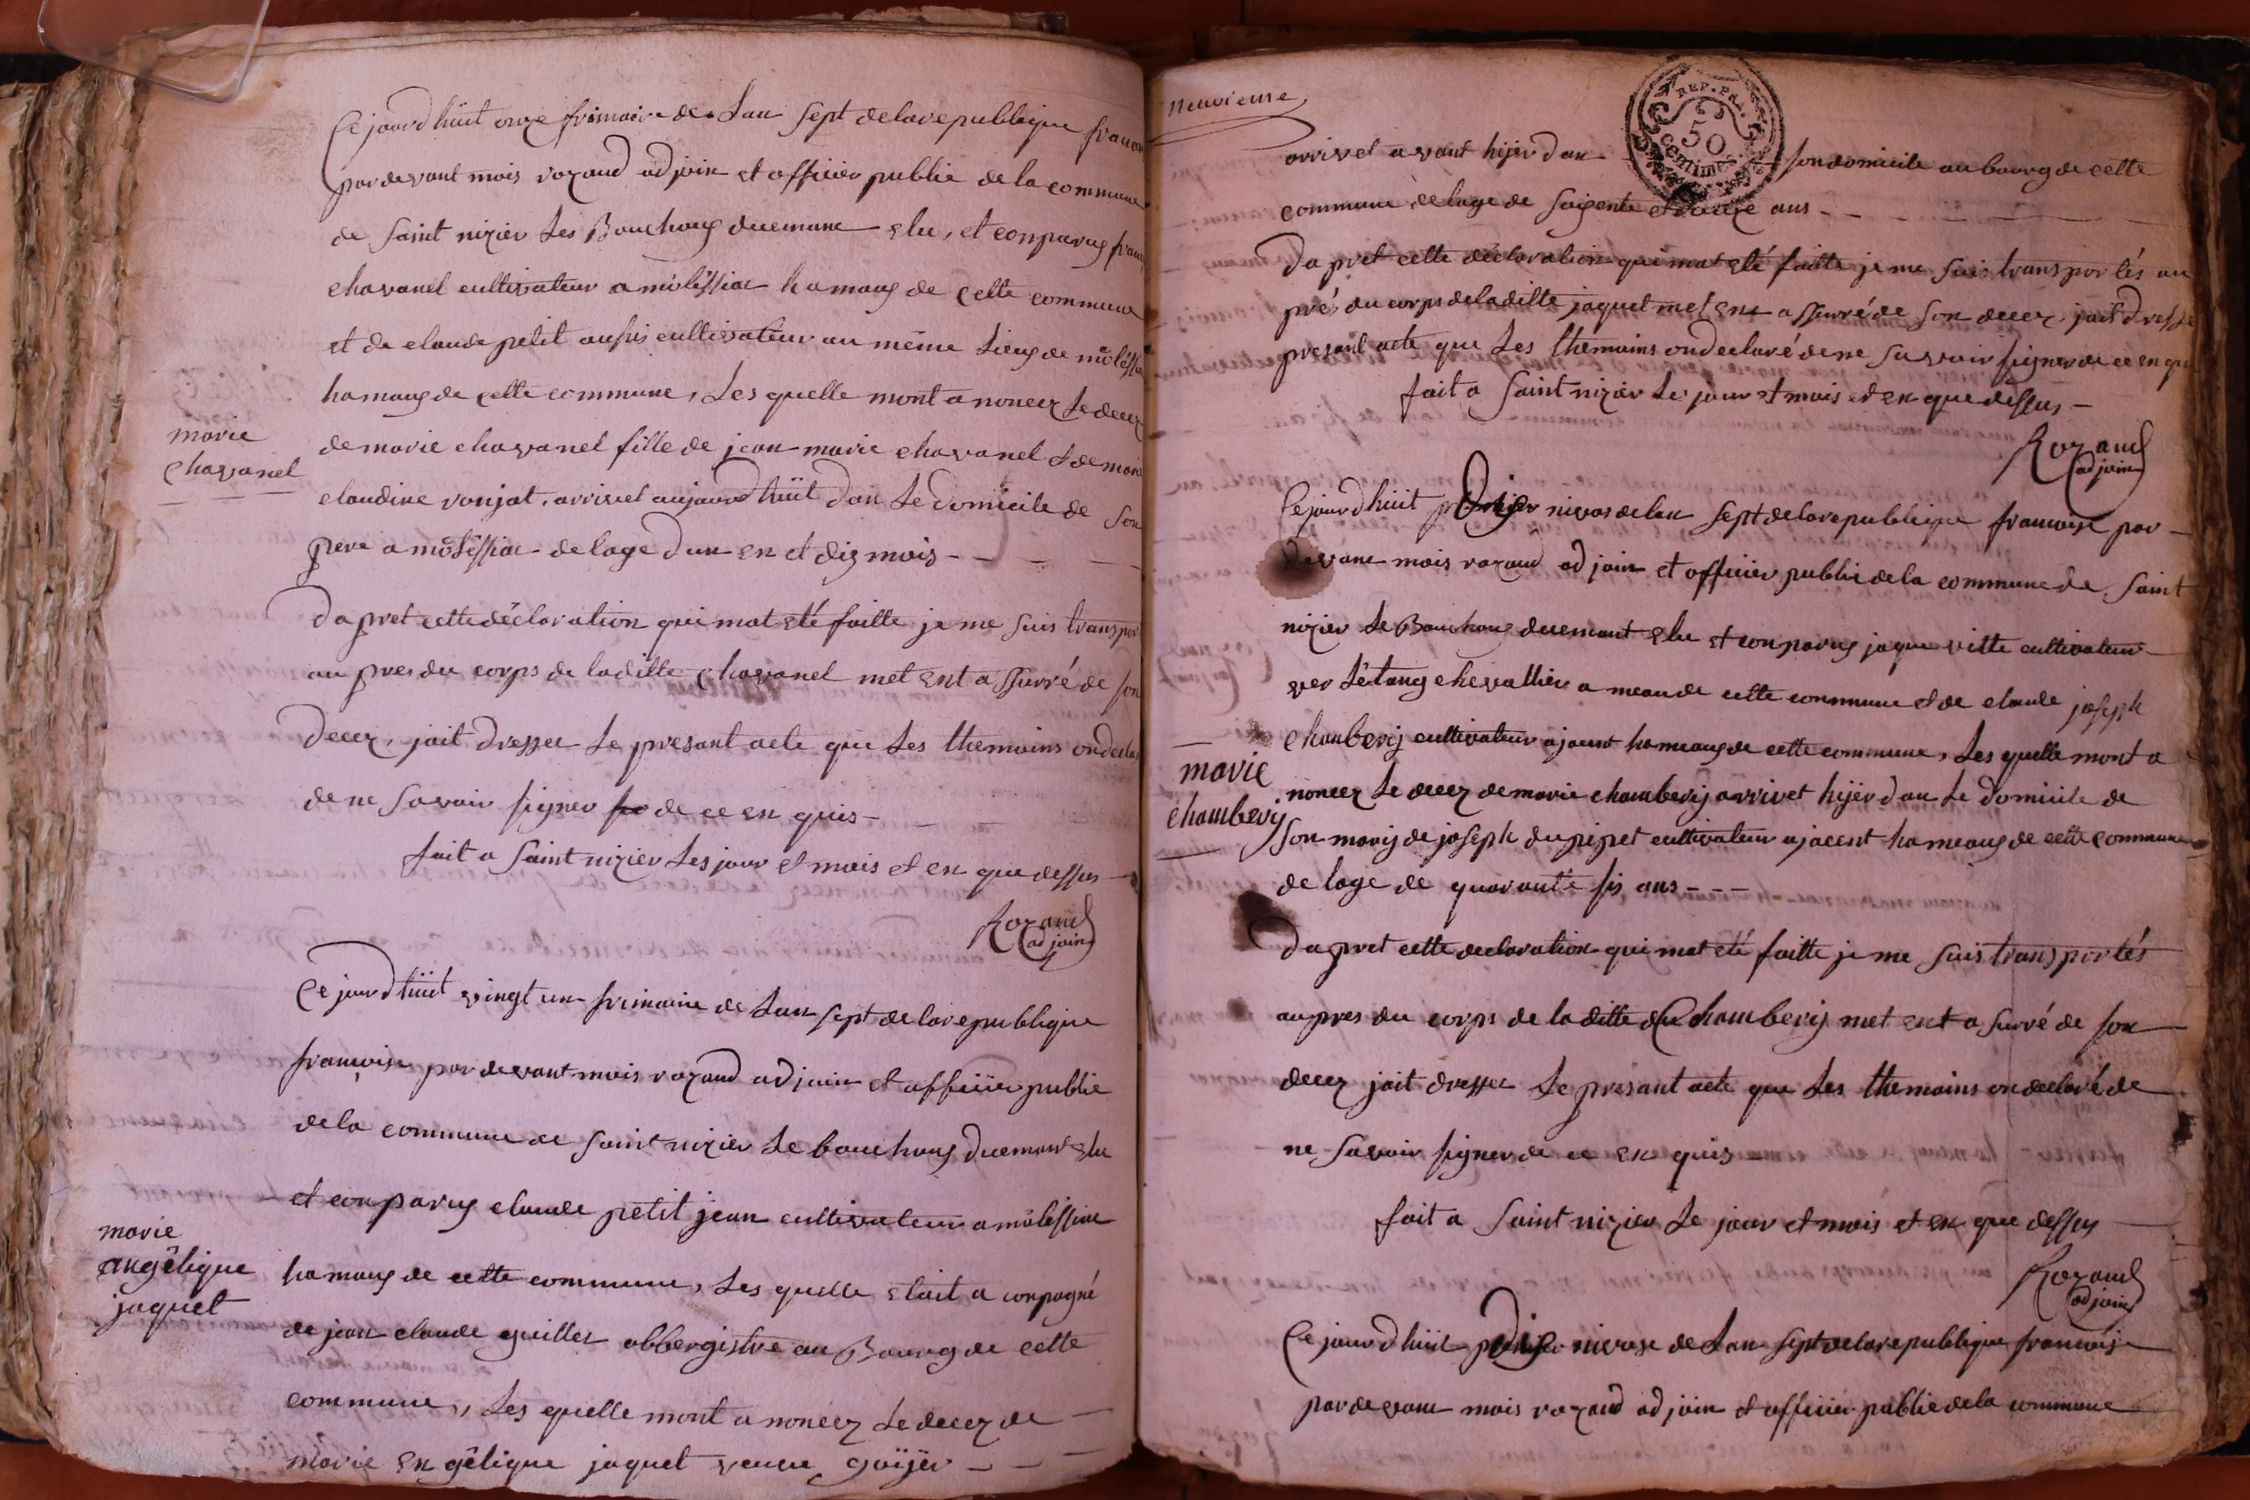 Cejourdhüit onze frimaire de Lan sept delarepubblique francoi
pardevant mois rozand adjoin et officier public de la commune
de saint nizier Les Bouchoug duemane elu, et conparug franc
chavanel cultivateur a molissiac hamaug de cette commune
et de claude petit aussis cultivateur au même Lieug de molissia
hamaug de cette commune, Les quelle mont a noncez Le decez
marie
chavanel
de marie chavanel fille de jean marie chavanel et de marie
claudine vonjat. arrivet aujourdhüit dan Le domicile de son
pere a molissiac de lage dun en et dix mois
Dapret cette déclaration qui mat eté faitte je me suis transpor
au pres du corps de laditte chavanel met ent assurré de son
decez, jait dresser Le presant acte que Les themoins ondeclar
de ne savoir signer de ce en quis
fait a saint nizier Les jour et mois et en que dessus
Rozand
adjoin
Ce jourdhüit vingt un frimaire de Lan sept de larepubblique
francoise pardevant mois rozand adjoin et officiier public
dela commune de saint nizier Le bouchoug duemant elu
et conparug claude petit jean cultivateur a molissiac
marie
angêlique
jaquet
hamaug de cette commune, Les quelle etait a conpagné
de jean claude guillet obbergistre au Bourg de cette
commune, Les quelle mont a noncez Le decez de
marie engêlique jaquet veuve goÿer
neuvieme
REP. FRA.
50
centimes
arrivet avant hijer dan son domicile au bourg de cette
commune de lage de soixente et douze ans
Dapret cette déclaration qui mat eté faitte je me suis transportés au
prés du corps deladitte jaquet met ent assurré de son decez, jait dresse
presant acte que Les themoins ondeclaré dene savoir signer de ce en qui
fait a saint nizier Le jour et mois et en que dessus
Rozand
adjoin
Cejourdhüit nivos delan sept delarepubblique francoise par
devant mois rozand adjoin et officier public dela commune de saint
nizier Le Bouchoug duemant elu et conparug jaque vitte cultivateur
ver Létang chevallier a meau de cette commune et de claude joseph
chanberij cultivateur ajacent hameaug de cette commune, Les quelle mont a
marie
chamberij
noncez Le decez de marie chamberij arrivet hijer dan Le domicile de
son marij de joseph dupipet cultivateur ajacent hameaug de cette commune
de lage de quarante sis ans
Dapret cette declaration qui mat eté faitte je me suis transportés
aupres du corps de laditte chamberij met ent a surré de son
decez jait dresser Le presant acte que Les themoins on declaré de
ne savoir signer de ce en quis
fait a saint nizier Le jour et mois et en que dessus
Rozand
adjoin
Ce jourdhüit nivose de Lan sept delarepubblique francois
pardevant mois rozand adjoin et officier public dela commune